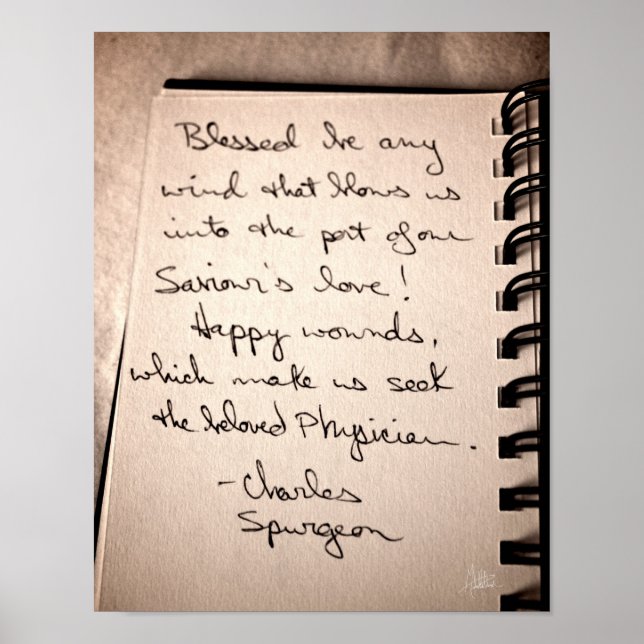 Blessed be any
wind that blows us
into the port of our
Saviour's love!
Happy wounds,
which make us seek
the beloved Physician.
-Charles
Spurgeon